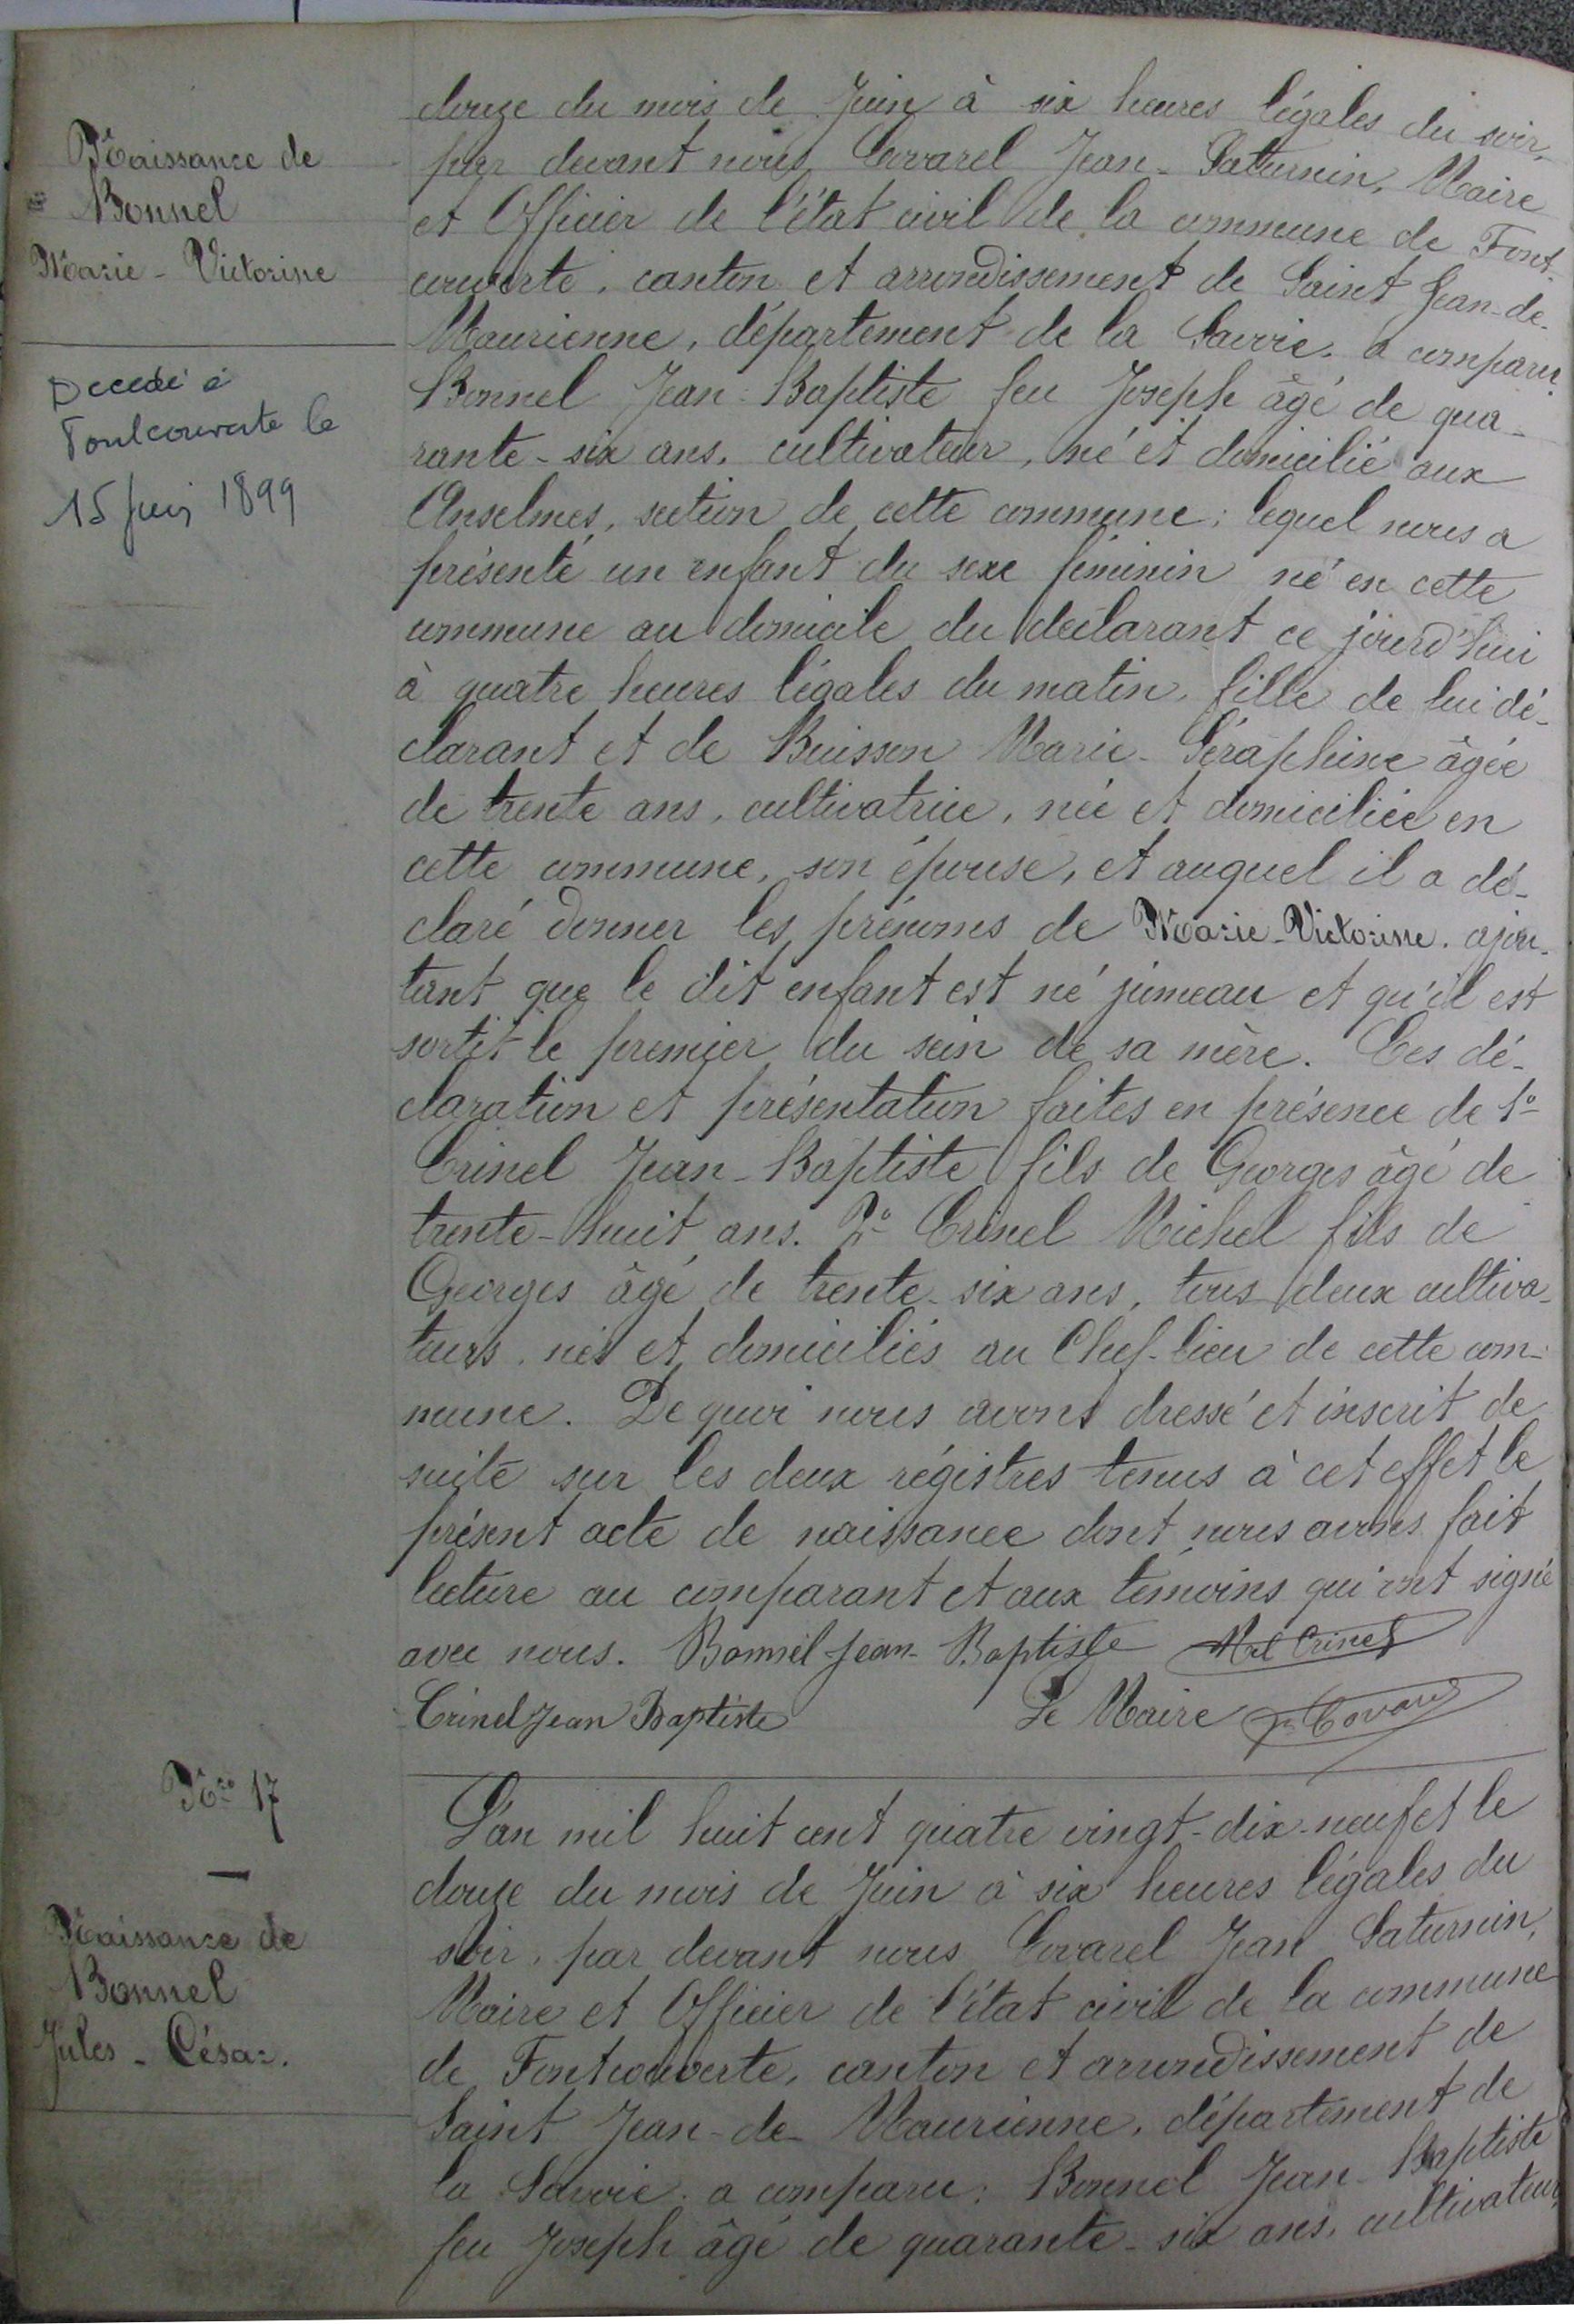 Naissance de
Bonnel
Marie - Victorine
Decedé à
Fontcouverte le
15 juin 1899
douze du mois de Juin à six heures légales du soir,
par devant nous Covarel Jean - Saturnin, Maire
et Officier de l'état civil de la commune de Font-
couverte, canton et arrondissement de Saint Jean-de-
Maurienne, département de la Savoie, a comparu
Bonnel Jean-Baptiste feu Joseph âgé de qua-
rante-six ans, cultivateur, né et domicilié aux
Anselmes, section de cette commune; lequel nous a
présenté un enfant du sexe féminin né en cette
commune au domicile du déclarant ce jourd'hui
à quatre heures légales du matin, fille de lui dé-
clarant et de Buisson Marie - Séraphine âgée
de trente ans, cultivatrice, née et domiciliée en
cette commune, son épouse, et auquel il a dé-
claré donner les prénoms de Marie-Victorine. ajou-
tant que le dit enfant est né jumeau et qu'il est
sortit le premier du sein de sa mère. Ces dé-
claration et présentation faites en présence de 1º
Crinel Jean-Baptiste fils de Georges âgé de
trente-huit ans. 2º Crinel Michel fils de
Georges âgé de trente-six ans, tous deux cultiva-
teurs, nés et domiciliés au Chef-lieu de cette com-
mune. De quoi nous avons dressé et inscrit de
suite sur les deux régistres tenus à cet effet le
présent acte de naissance dont nous avons fait
lecture au comparant et aux témoins qui ont signé
avec nous. Bonnel Jean-Baptiste Mel Crinel
Crinel Jean Baptiste Le Maire Covarel
Nro 17
Naissance de
Bonnel
Jules - César.
L'an mil huit cent quatre vingt-dix-neuf et le
douze du mois de Juin à six heures légales du
soir, par devant nous Covarel Jean Saturnin,
Maire et Officier de l'état civil de la commune
de Fontcouverte, canton et arrondissement de
Saint Jean-de-Maurienne, département de
la Savoie, a comparu: Bonnel Jean-Baptiste
feu Joseph âgé de quarante-six ans, cultivateur,